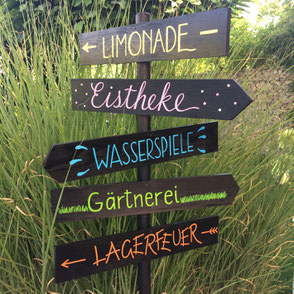 LIMONADE
Eistheke
WASSERSPIELE
Gärtnerei
LAGERFEUER